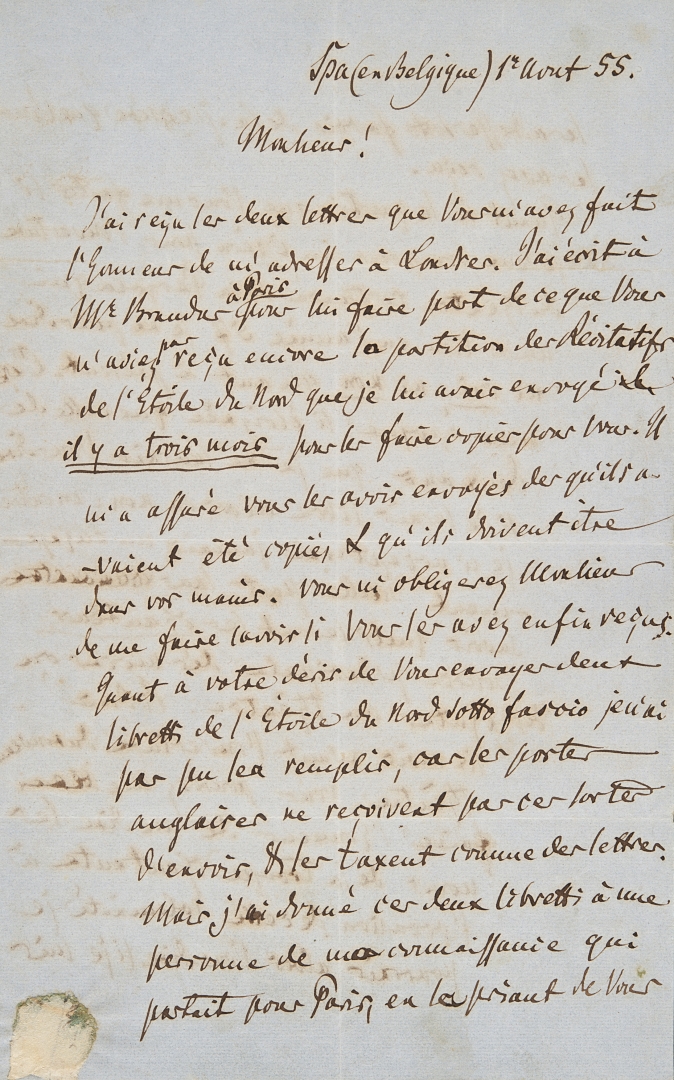 Spa (en Belgique) 1r Aout 55.
Monsieur!
J'ai reçu les deux lettres que Vous m'avez fait
l'honneur de m'adresser à Londres. J'ai écrit à
Mr Brandus à Paris pour lui faire part de ce que Vous
n'aviez pas reçu encore la partition des Récitatifs
de l'Étoile du Nord que je lui avais envoyé
il y a trois mois pour les faire copier pour Vous. Il
m'a assuré vous les avoir envoyés des qu'ils a-
-vaient été copiés & qu'ils doivent être
dans vos mains. Vous m'obligerez Monsieur
de me faire savoir si Vous les avez enfin reçus.
Quant à votre désir de Vous envoyer deux
libretti de l'Étoile du Nord sotto fascio je n'ai
pas pu le remplir, car les postes
anglaises ne reçoivent pas ces sortes
d'envois, & les taxent comme des lettres.
Mais j'ai donné ces deux libretti à une
personne de ma connaissance qui
partait pour Paris, en la priant de Vous